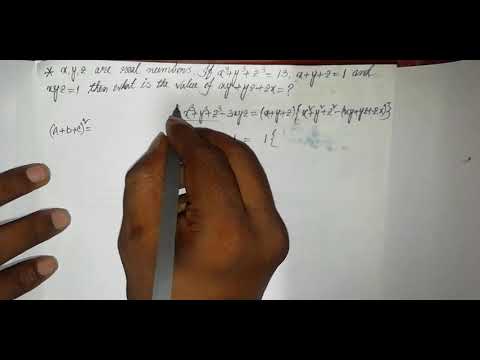 * x,y,z are real numbers. If x³+y³+z³=13. x+y+z=1 and
xyz=1 then what is the value of xy+yz+zx=?
x³+y³+z³-3xyz=(x+y+z){x²+y²+z²-(xy+yz+zx)}
(a+b+c)²=
= 1{